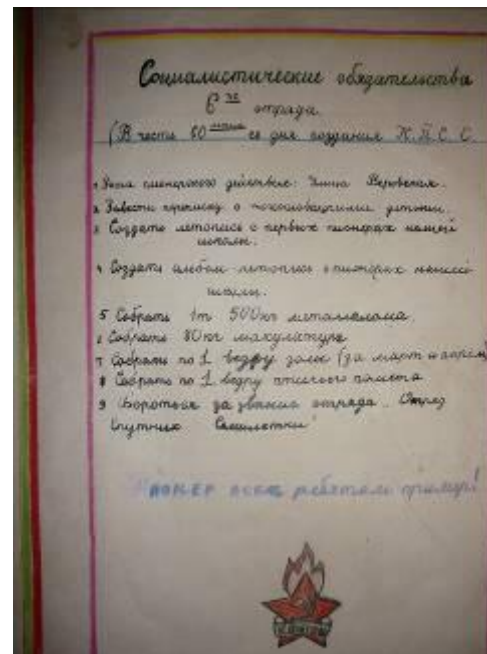 Социалистические обязательства
6 го отряда.
(В честь 60 летия со дня создания К.П.С.С.
1 Зона пионерского действия: Улица
2 Завести переписку с чехословацкими детьми.
3 Создать летопись о первых пионерах нашей
школы.
4 Создать альбом летопись о пионерах нашей
школы.
5 Собрать 1т 500кг металлолома.
6 Собрать 80кг макулатуры
7 Собрать по 1 ведру золы (за март и апрель)
8 Собрать по 1 ведру птичьего помёта
9 Бороться за звание отряда „Отряд
Спутник Семилетки"
Пионер всем ребятам пример!